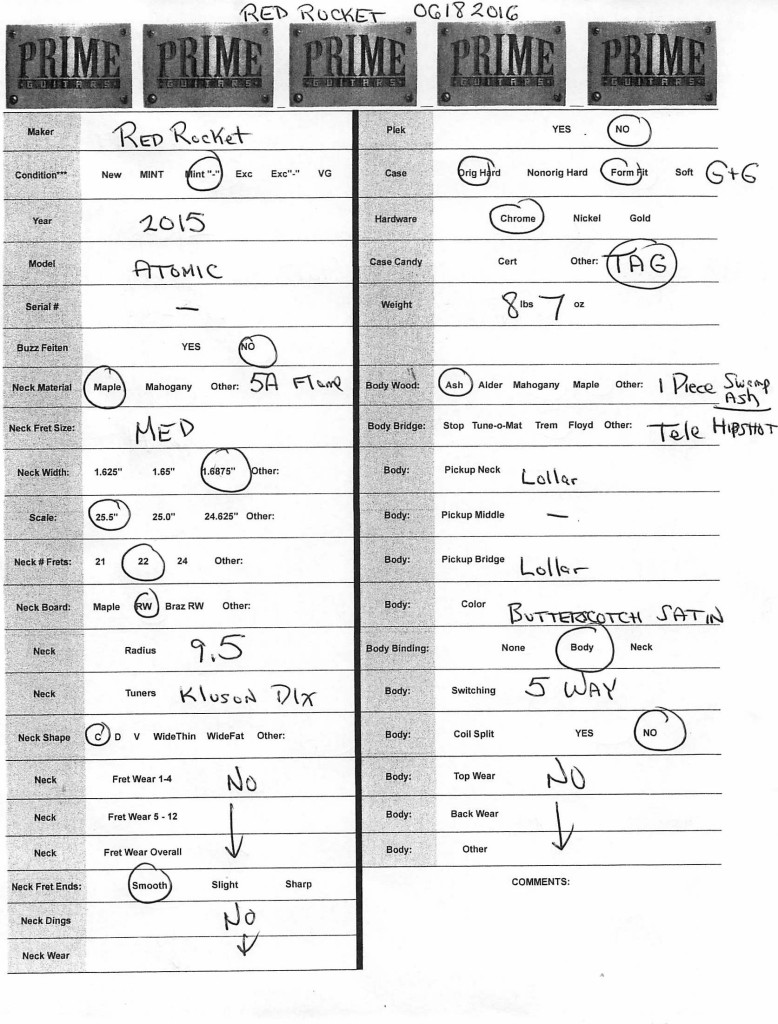 RED ROCKET 06182016
PRIME GUITARS PRIME GUITARS PRIME GUITARS PRIME GUITARS PRIME GUITARS
Maker RED Rocket
Condition*** New MINT Mint "-" Exc Exc"-" VG
Year 2015
Model ATOMIC
Serial # —
Buzz Feiten YES NO
Neck Material Maple Mahogany Other: 5A Flame
Neck Fret Size: MED
Neck Width: 1.625" 1.65" 1.6875" Other:
Scale: 25.5" 25.0" 24.625" Other:
Neck # Frets: 21 22 24 Other:
Neck Board: Maple RW Braz RW Other:
Neck Radius 9.5
Neck Tuners Kluson Dlx
Neck Shape C D V WideThin WideFat Other:
Neck Fret Wear 1-4 NO
Neck Fret Wear 5 - 12
Neck Fret Wear Overall
Neck Fret Ends: Smooth Slight Sharp
Neck Dings NO
Neck Wear
Plek YES NO
Case Orig Hard Nonorig Hard Form Fit Soft G+G
Hardware Chrome Nickel Gold
Case Candy Cert Other: TAG
Weight 8 lbs 7 oz
Body Wood: Ash Alder Mahogany Maple Other: 1 Piece Swamp Ash
Body Bridge: Stop Tune-o-Mat Trem Floyd Other: Tele HIPSHOT
Body: Pickup Neck Lollar
Body: Pickup Middle —
Body: Pickup Bridge Lollar
Body: Color BUTTERSCOTCH SATIN
Body Binding: None Body Neck
Body: Switching 5 WAY
Body: Coil Split YES NO
Body: Top Wear NO
Body: Back Wear
Body: Other
COMMENTS: